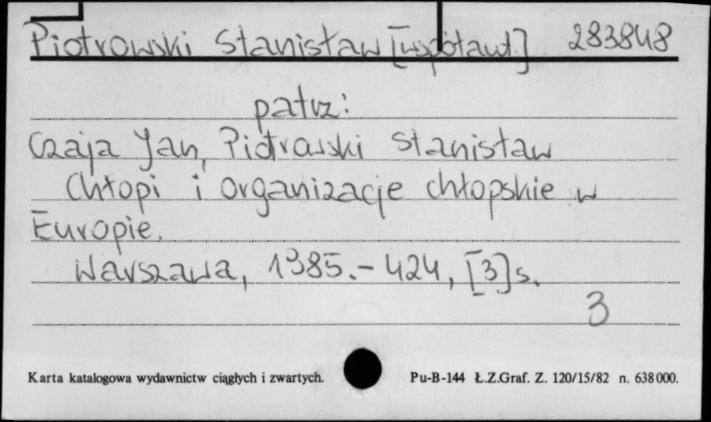 Piotrowski Stanisław [współaut.] 283848
patrz:
Czaja Jan, Piotrowski Stanisław
Chłopi i organizacje chłopskie w
Europie.
Warszawa, 1985.- 424, [3] s.
3
Karta katalogowa wydawnictw ciągłych i zwartych. Pu-B-144 Ł.Z.Graf. Z. 120/15/82 n. 638000.